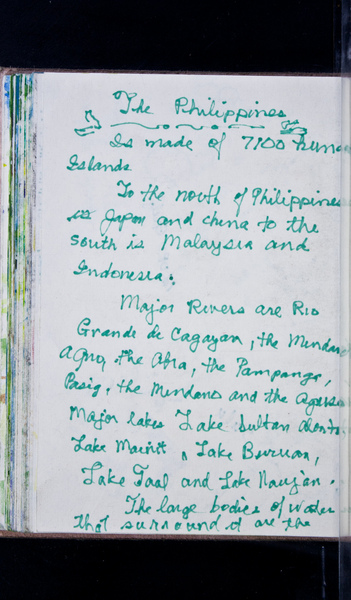 The Philippines
Is made of 7100
Islands
To the north of Philippines
is Japan and china to the
south is Malaysia and
Indonesia.
Major Rivers are Rio
Grande de Cagayan, the
Agno, the Abra, the Pampanga,
Pasig, the Mindano and the
Major lakes Lake Sultan
Lake Mainit, Lake Buruan,
Lake Taal and Lake Naujan.
The large bodies of water
that surround d are the